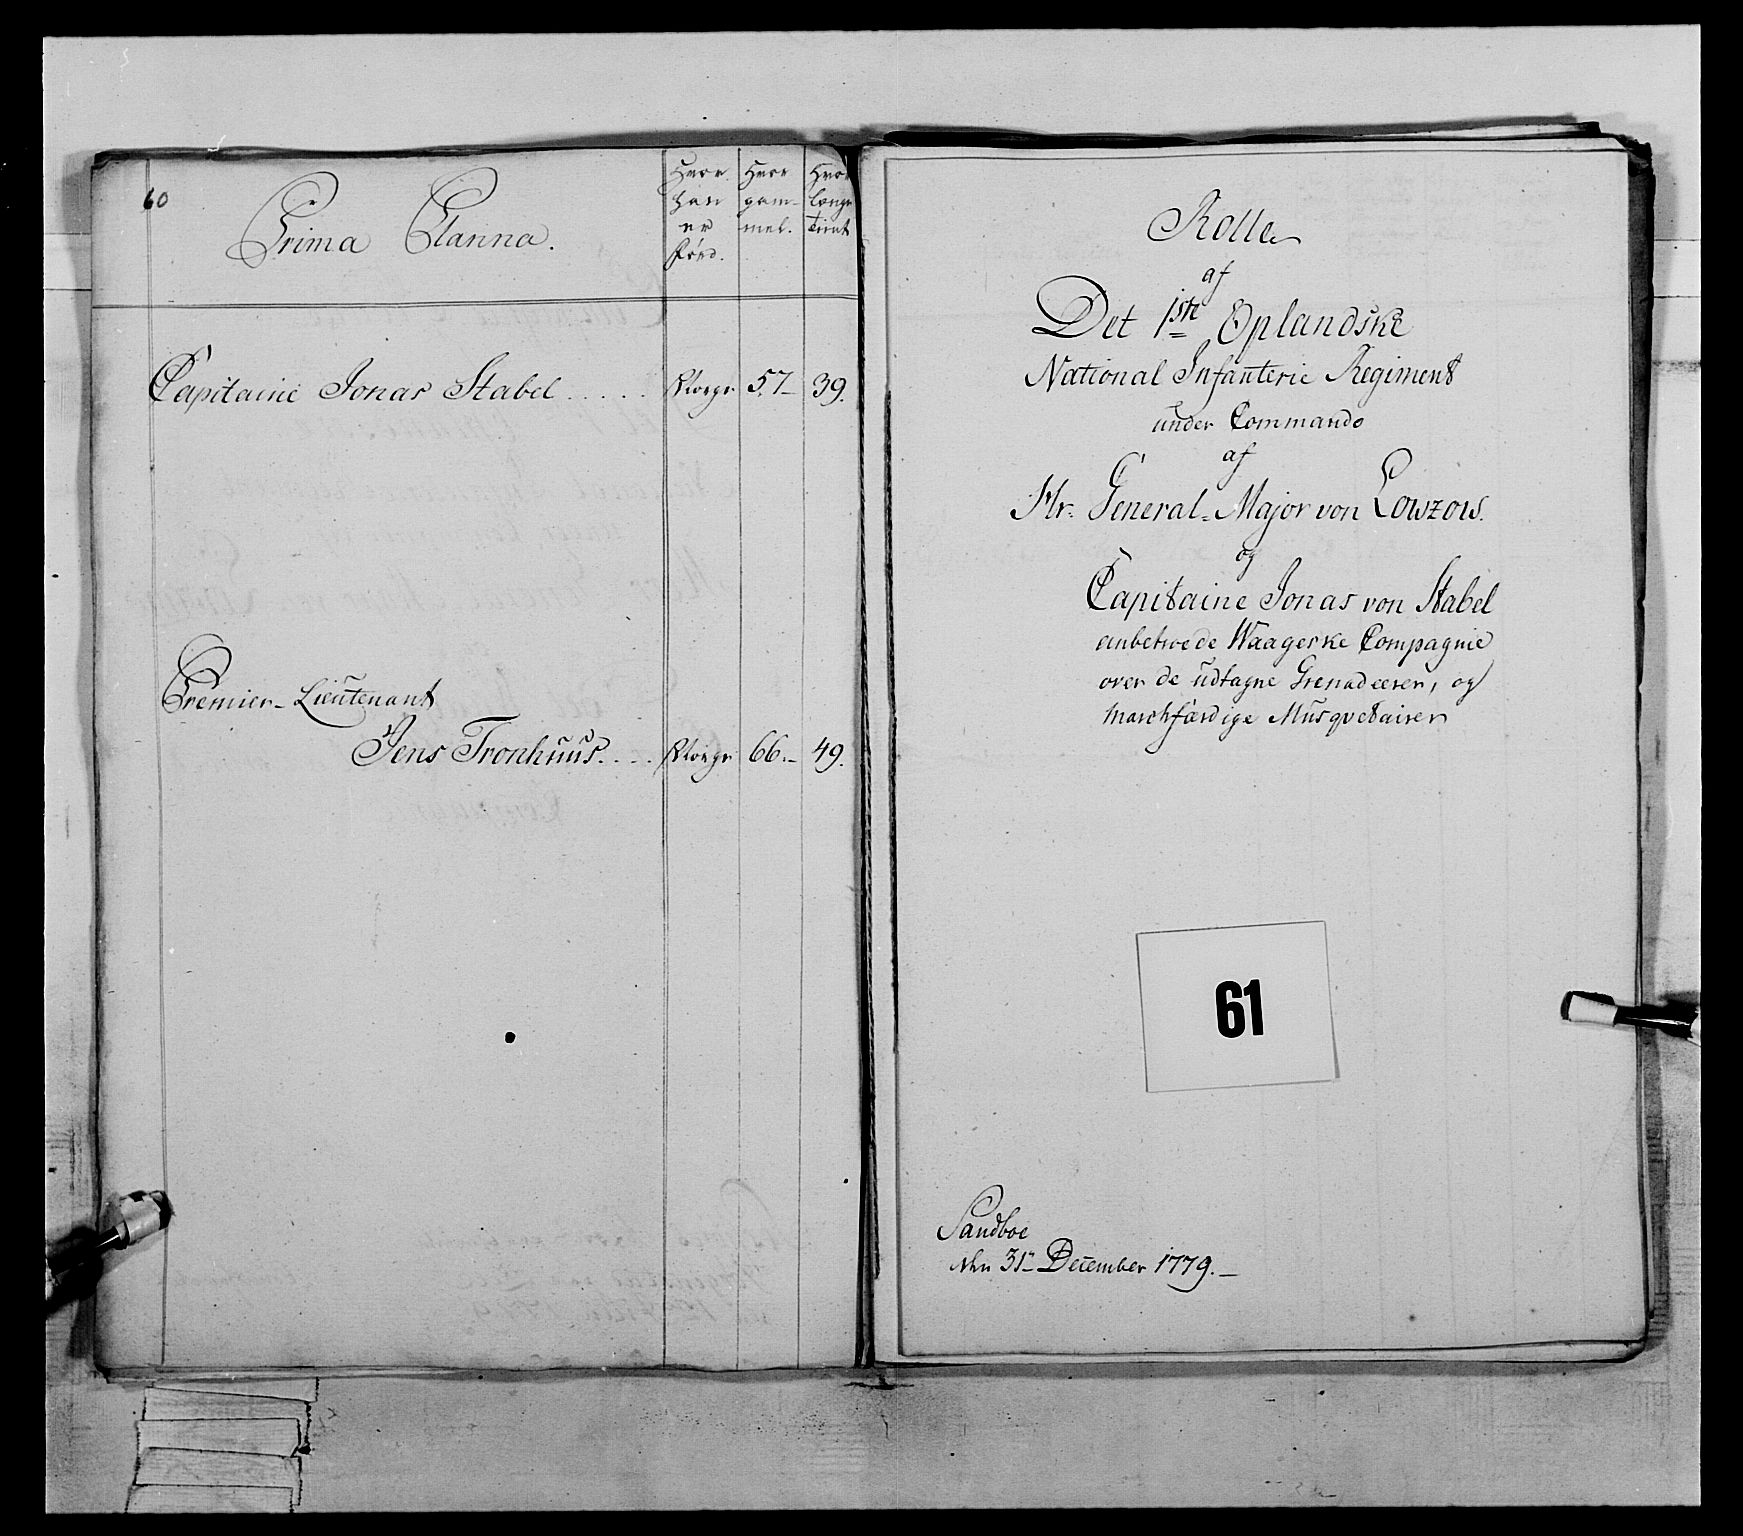 60
Prima Plana.
Hvor han er Fød.
Hvor gam- mel.
Hvor længe Tient
Capitaine Jonas Stabel ..... Norge 57- 39.
Premier-Lieutenant
Jens Tronhuus.... Norge 66.- 49.
Rolle
af
Det 1ste Oplandske
National Infanterie Regiment
under Commando
af
Hr. General-Major von Lowzow.
og
Capitaine Jonas von Stabel
anbetroede Waagerske Compagnie
over de udtagne Grenadeerer, og
marchfærdige Musqvetairer
61
Sandboe
den 31te December 1779.-